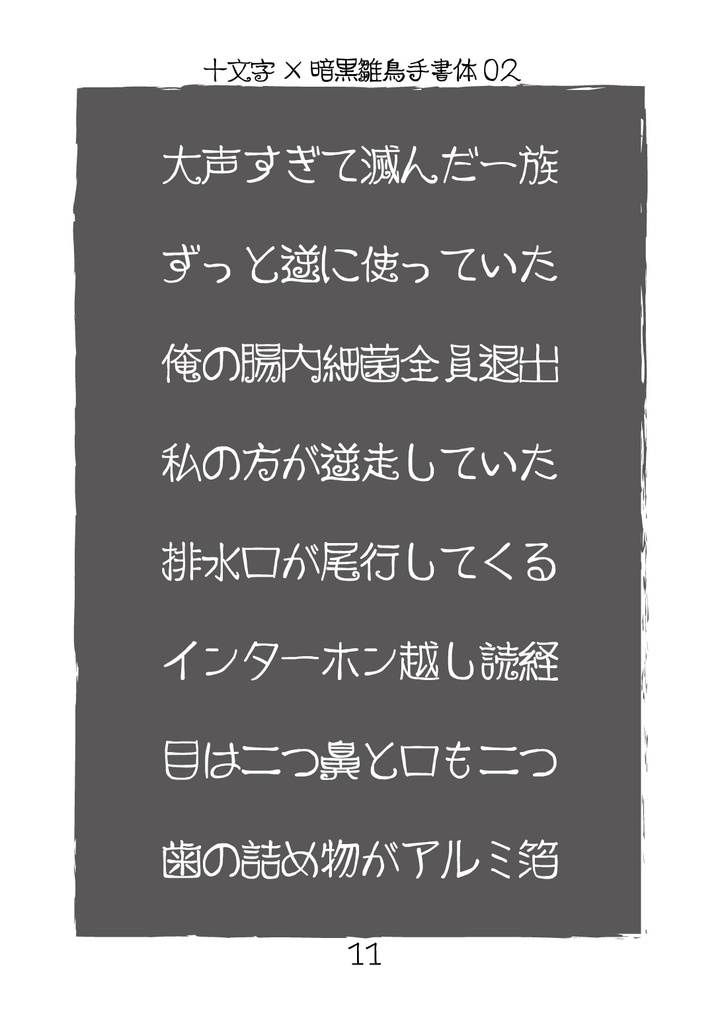 十文字×暗黒雛鳥手書体02
大声すぎて滅んだ一族
ずっと逆に使っていた
俺の腸内細菌全員退出
私の方が逆走していた
排水口が尾行してくる
インターホン越し読経
目は二つ鼻と口も二つ
歯の詰め物がアルミ箔
11